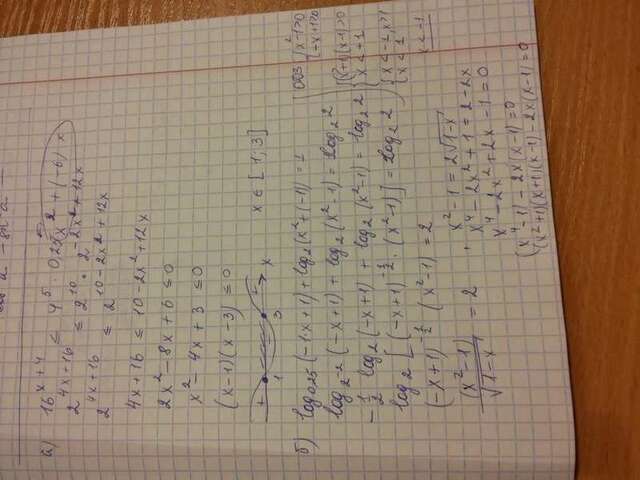 а) 16^{x+4} ≤ 4^5 · 0,25^{x^2+(-6)x}
2^{4x+16} ≤ 2^{10} · 2^{-2x^2+12x}
2^{4x+16} ≤ 2^{10-2x^2+12x}
4x+16 ≤ 10-2x^2+12x
2x^2-8x+6 ≤ 0
x^2-4x+3 ≤ 0
(x-1)(x-3) ≤ 0
+ - + 1 3 x x ∈ [1; 3]
б) log_{0,25}(-1·x+1) + log_2(x^2+(-1)) = 1
log_{2^{-2}}(-x+1) + log_2(x^2-1) = log_2 2
-1/2 log_2(-x+1) + log_2(x^2-1) = log_2 2
log_2[(-x+1)^{-1/2} · (x^2-1)] = log_2 2
(-x+1)^{-1/2} (x^2-1) = 2
(x^2-1)/√(1-x) = 2
ОДЗ { x^2-1>0
-x+1>0
{ (x+1)(x-1)>0
x<1
{ x<-1, x>1
x<1
x<-1
x^2-1 = 2√(1-x)
x^4-2x^2+1 = 2-2x
x^4-2x^2+2x-1=0
(x^4-1)-2x(x-1)=0
(x^2+1)(x+1)(x-1)-2x(x-1)=0